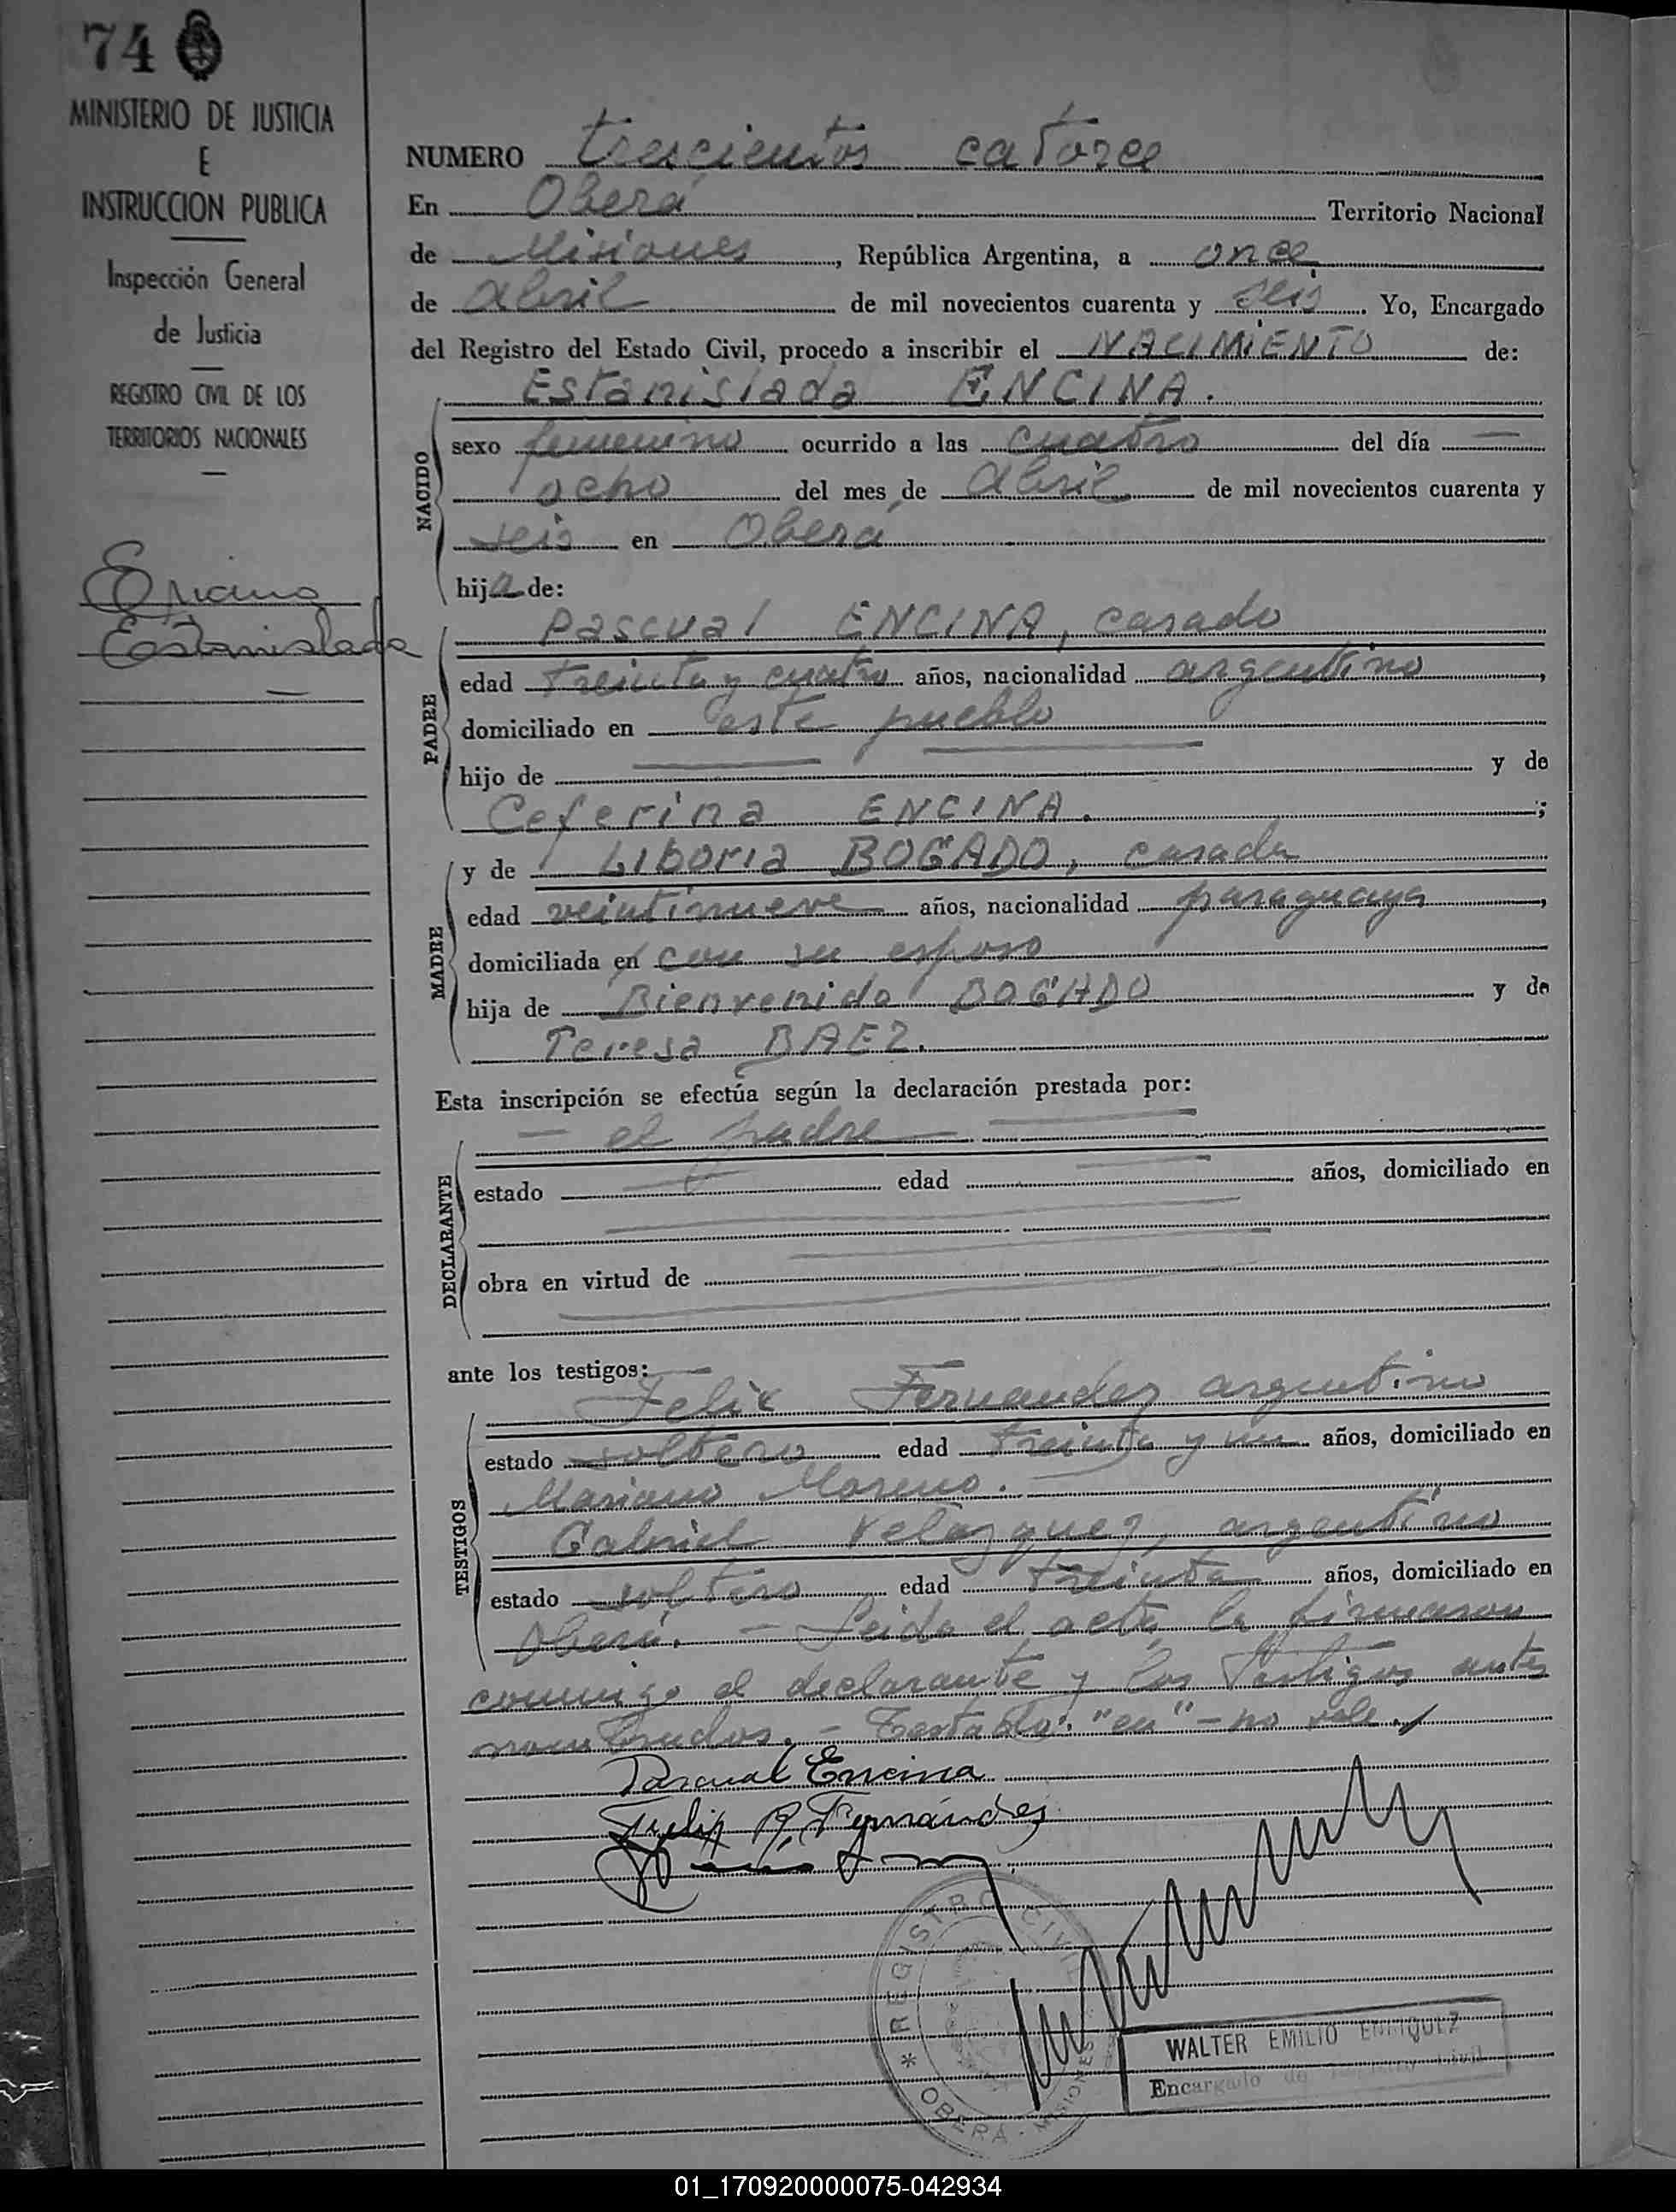 74
MINISTERIO DE JUSTICIA
E
INSTRUCCION PUBLICA
Inspección General
de Justicia
REGISTRO CIVIL DE LOS
TERRITORIOS NACIONALES
Encina
Estanislada
NUMERO trescientos catorce
En Oberá Territorio Nacional
de Misiones, República Argentina, a once
de Abril de mil novecientos cuarenta y seis. Yo, Encargado
del Registro del Estado Civil, procedo a inscribir el NACIMIENTO de:
Estanislada ENCINA.
NACIDO
sexo femenino ocurrido a las cuatro del día —
ocho del mes de Abril de mil novecientos cuarenta y
seis en Oberá
hija de:
PADRE
Pascual ENCINA, casado
edad treinta y cuatro años, nacionalidad argentino,
domiciliado en este pueblo
hijo de y de
Ceferina ENCINA. ;
MADRE
y de Liboria BOGADO, casada
edad veintinueve años, nacionalidad paraguaya,
domiciliada en con su esposo
hija de Bienvenido BOGADO y de
Teresa BAEZ.
Esta inscripción se efectúa según la declaración prestada por:
DECLARANTE
— el padre —
estado edad años, domiciliado en
obra en virtud de
ante los testigos:
TESTIGOS
Felix Fernandez argentino
estado soltero edad treinta y un años, domiciliado en
Mariano Moreno.
Gabriel Velazquez, argentino
estado soltero edad treinta años, domiciliado en
Oberá. — Leida el acta, la firmaron
conmigo el declarante y los testigos ante
nombrados. — Testado: "en" — no vale.
Pascual Encina
Felix R. Fernández
* REGISTRO CIVIL
OBERA - MISIONES
WALTER EMILIO ENRIQUEZ
Encargado de Registro Civil
01_170920000075-042934